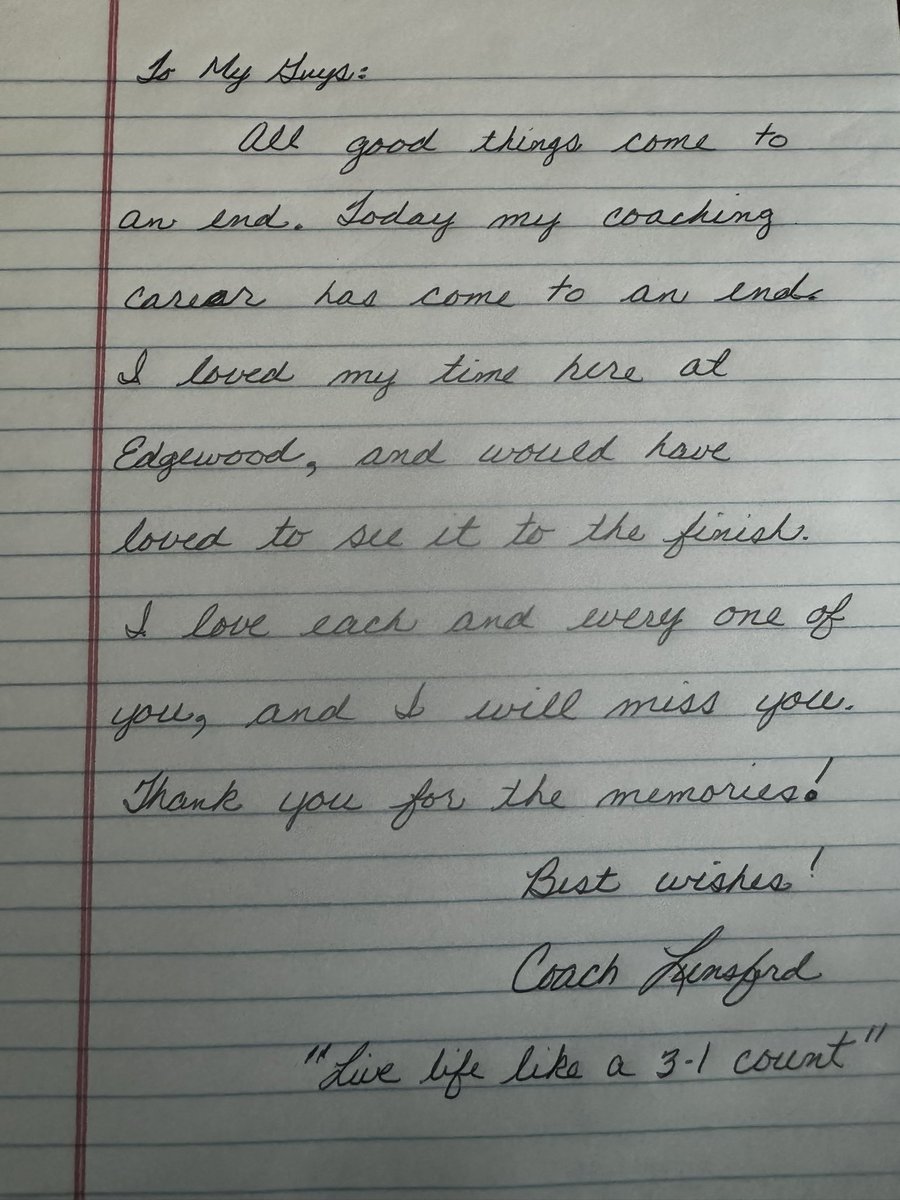 To My Guys:
All good things come to
an end. Today my coaching
carear has come to an end.
I loved my time here at
Edgewood, and would have
loved to see it to the finish.
I love each and every one of
you, and I will miss you.
Thank you for the memories!
Best wishes!
Coach Lunsford
"Live life like a 3-1 count"